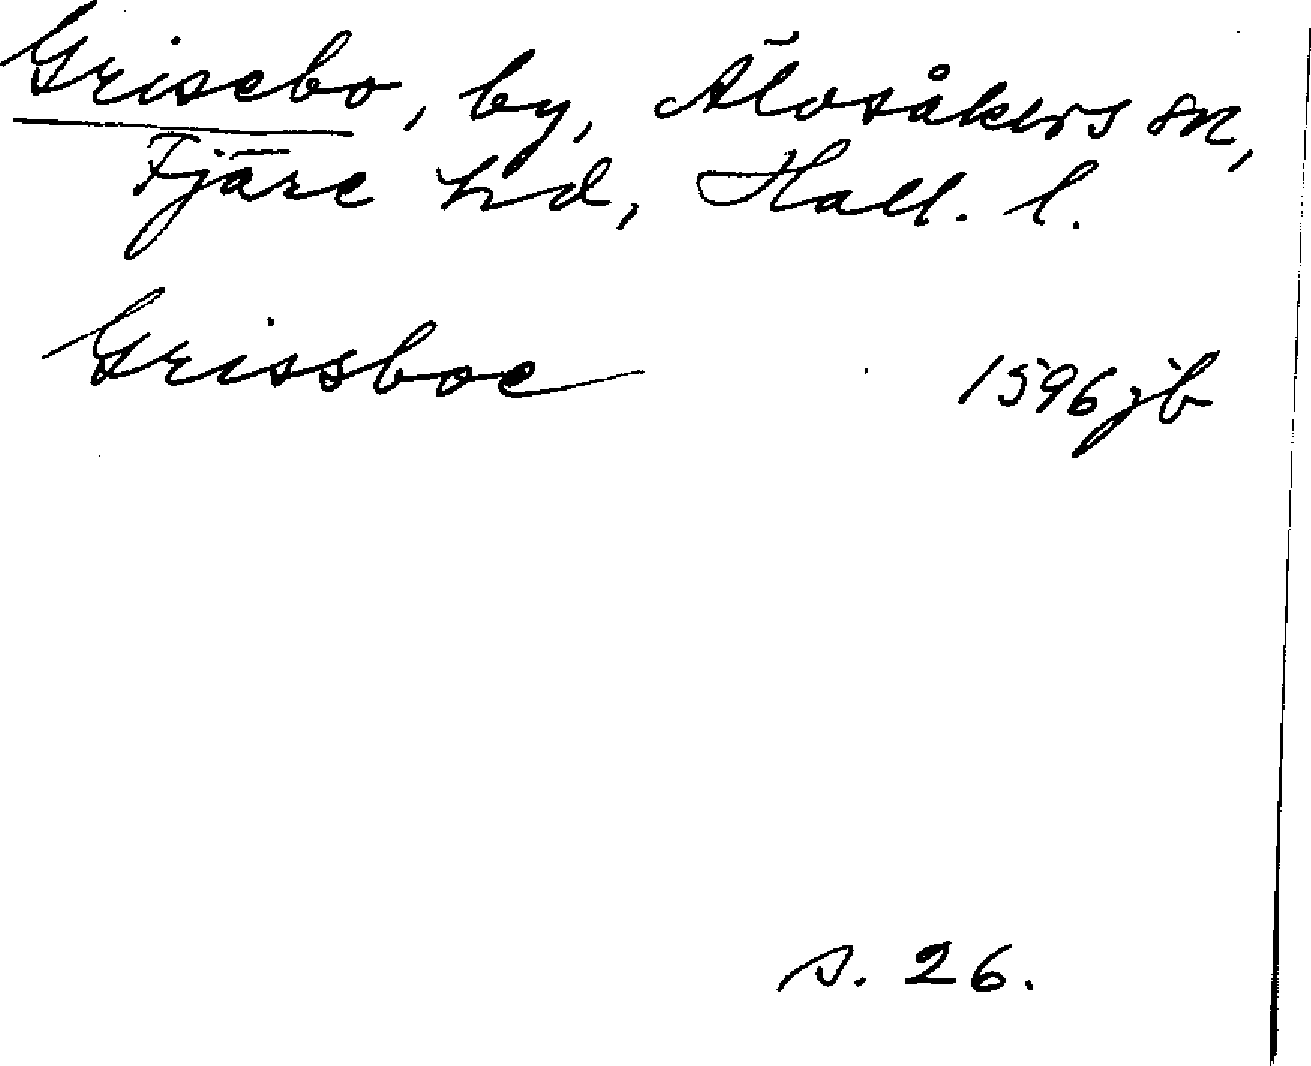 Grisebo, by, Älvsåkers sn,
Fjäre hd, Hall. l.
Grissboe 1596 jb
s. 26.